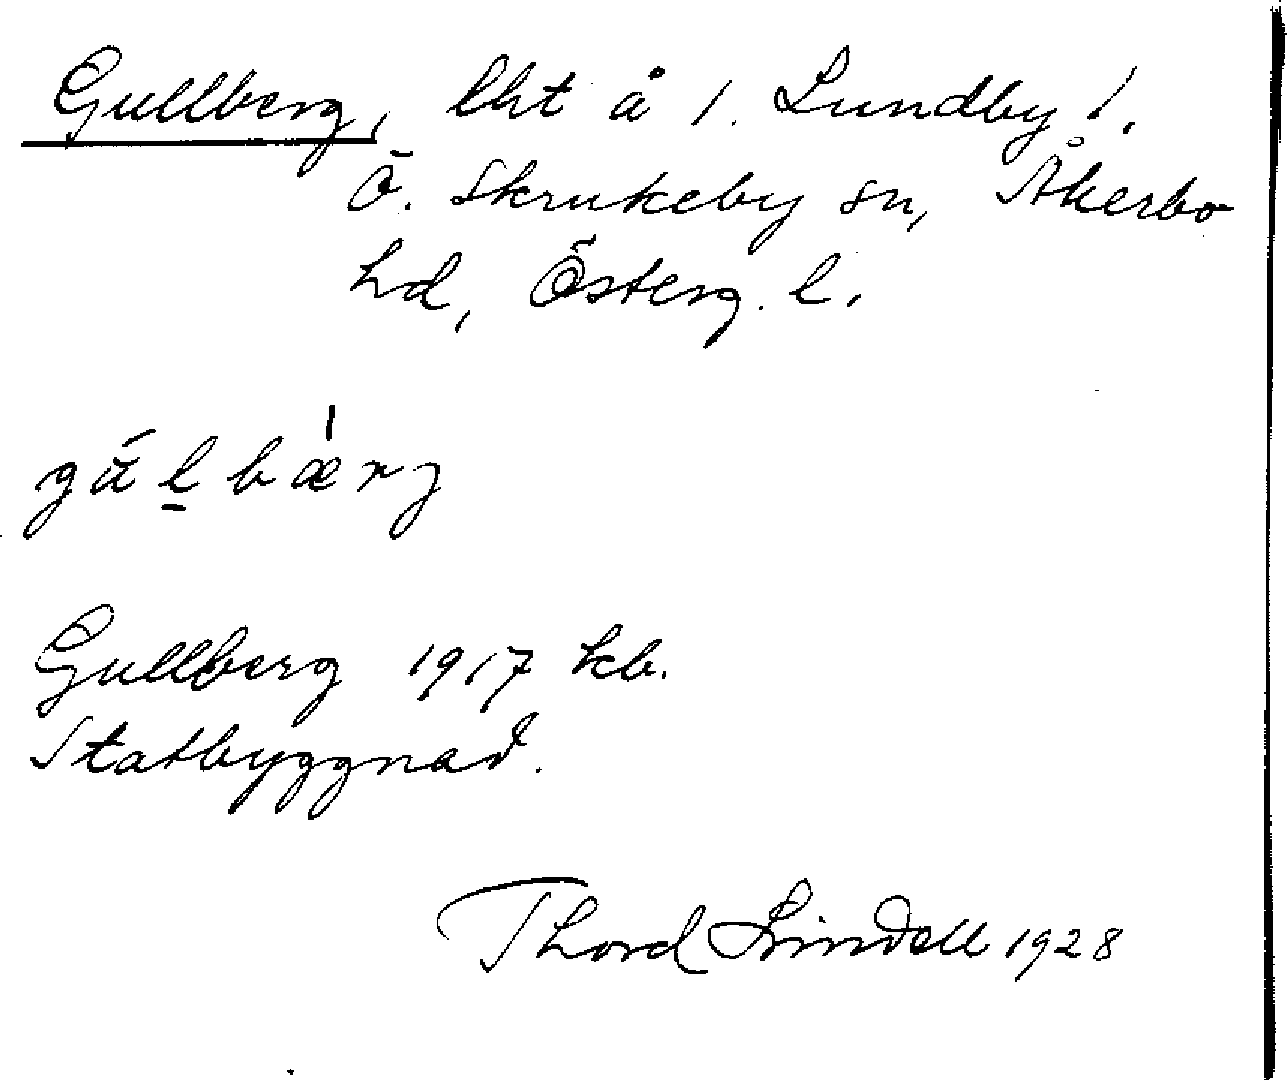 Gullberg, lht å 1. Lundby 1.
Ö. Skrukeby sn, Åkerbo
hd, Österg. l.
gu̇́l̲bæ̍rj
Gullberg 1917 kb.
Statbyggnad.
Thord Lindell 1928